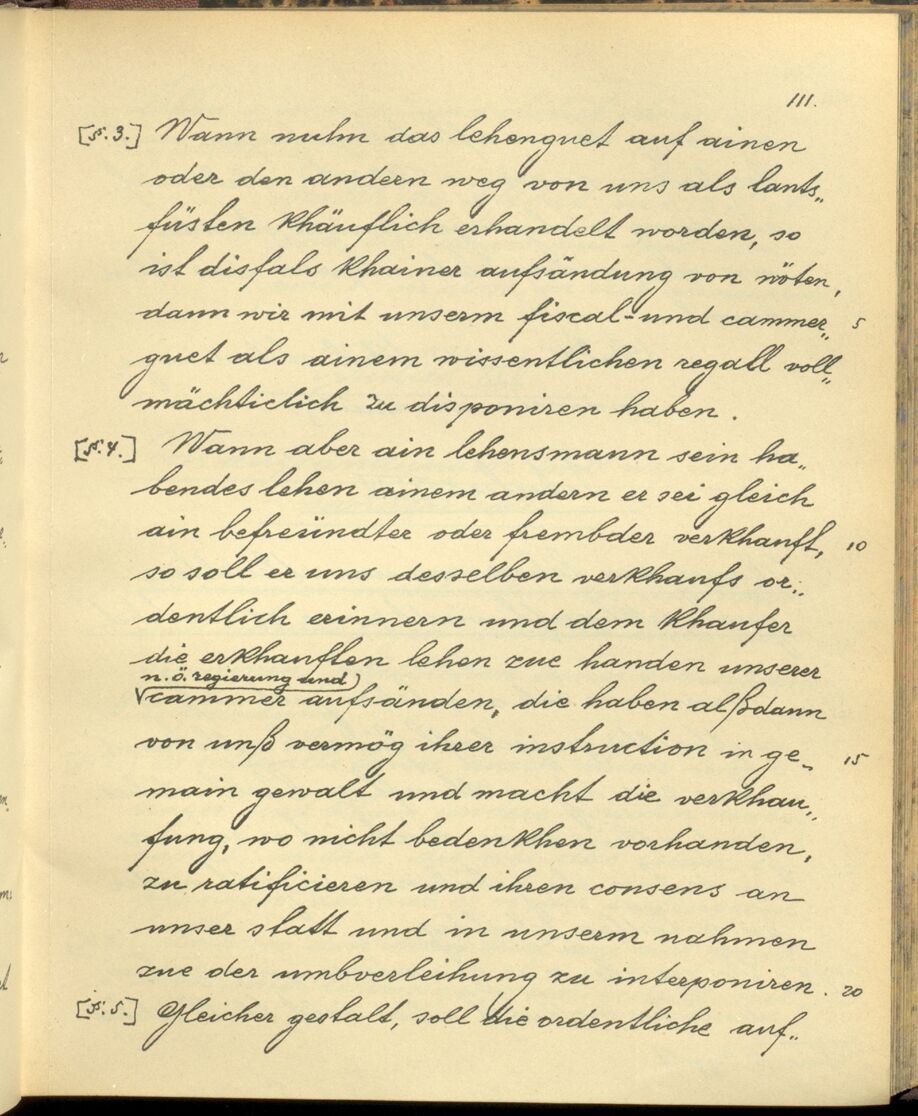 111.
[§. 3.] Wann nuhn das lehenguet auf ainen
oder den andern weg von uns als lants„
fürsten khäuflich erhandelt worden, so
ist disfals khainer aufsändung von nöten,
dann wir mit unserm fiscal- und cammer„ 5
guet als ainem wissentlichen regall voll„
mächticlich zu disponiren haben.
[§. 4.] Wann aber ain lehensmann sein ha„
bendes lehen ainem andern er sei gleich
ain befreündter oder frembder verkhauft, 10
so soll er uns desselben verkhaufs or„
dentlich erinnern und dem khaufer
die erkhauften lehen zue handen unserer
n. ö. regierung und
cammer aufsänden, die haben alßdann
von unß vermög ihrer instruction in ge„ 15
main gewalt und macht die verkhau„
fung, wo nicht bedenkhen vorhanden,
zu ratificieren und ihren consens an
unser statt und in unserm nahmen
zue der umbverleihung zu interponiren. 20
[§. 5.] Gleicher gestalt, soll die ordentliche auf„